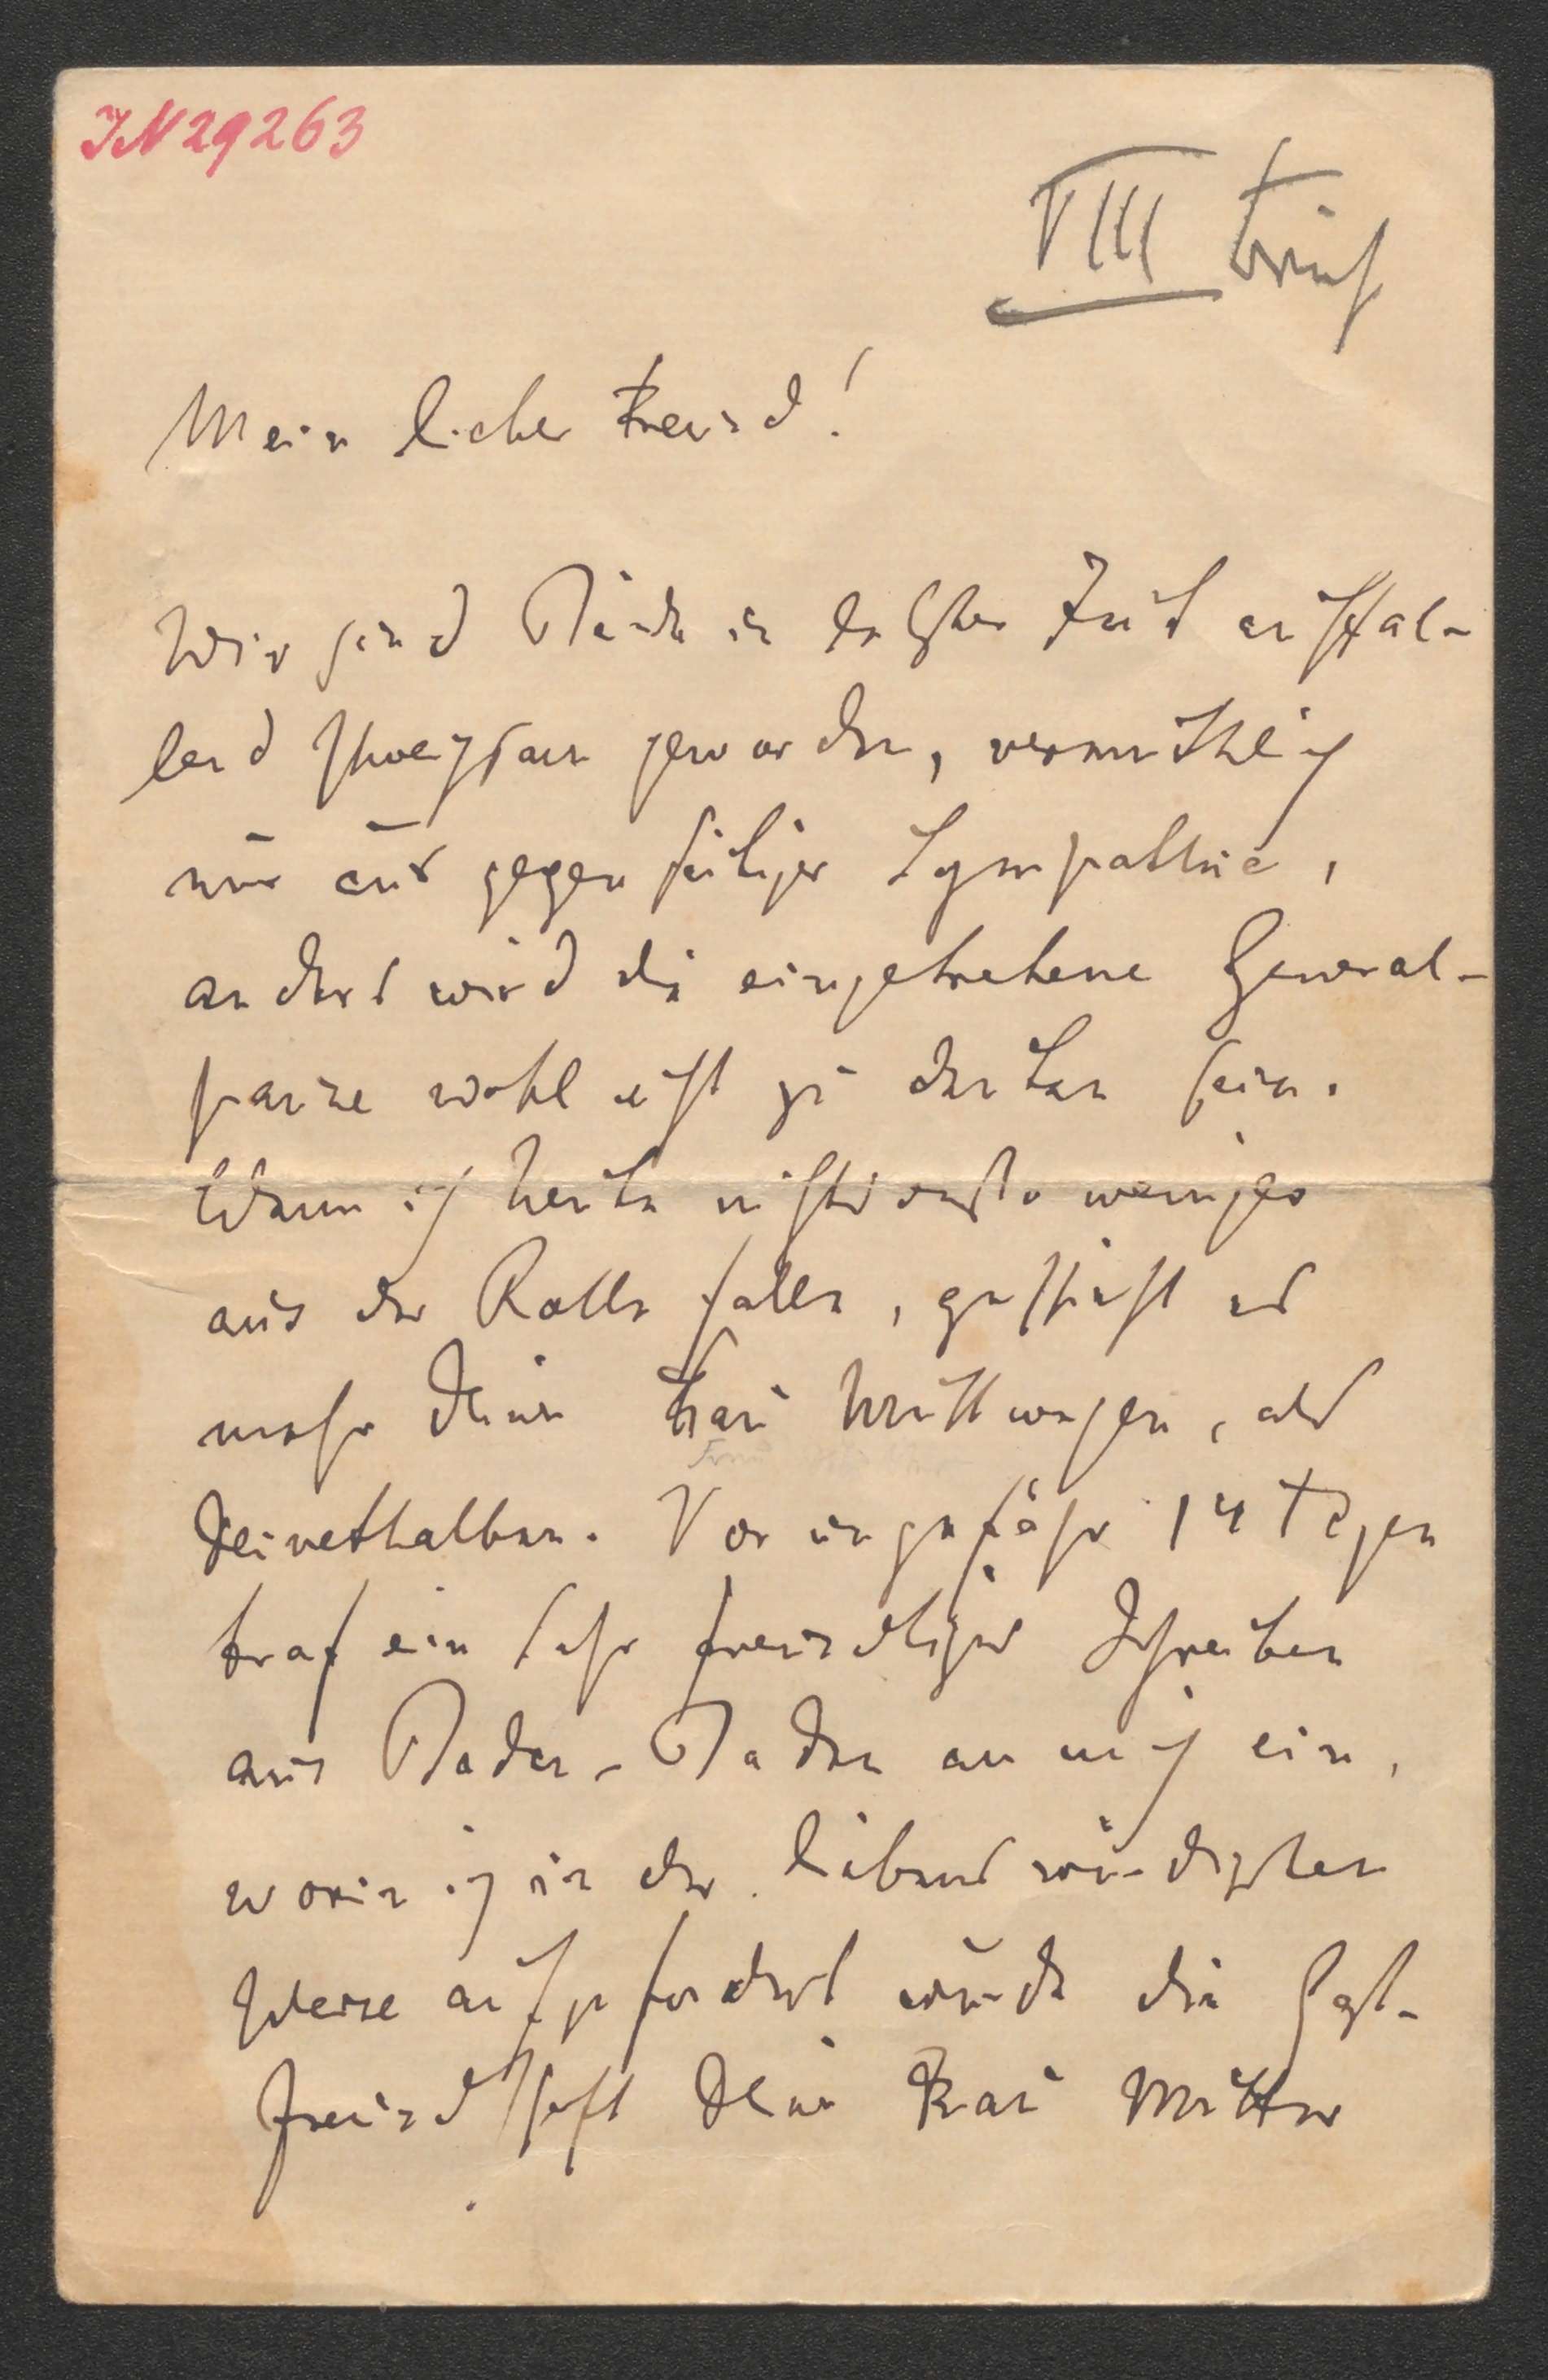 IN 29263
VIII Brief
Mein lieber Freund!
Wir sind Beide in letzter Zeit auffal-
lend schweigsam geworden, vermuthlich
nur aus gegenseitiger Sympathie,
anders wird die eingetretene General-
pause wohl nicht zu deuten sein.
Wenn ich heute nichtsdestoweniger
aus der Rolle falle, geschieht es
mehr Deiner Frau Mutter wegen, als
Deinethalben. Vor ungefähr 14 Tagen
traf ein sehr freundliches Schreiben
aus Baden-Baden an mich ein,
worin ich in der liebenswürdigsten
Weise aufgefordert wurde die Gast-
freundschaft Deiner Frau Mutter